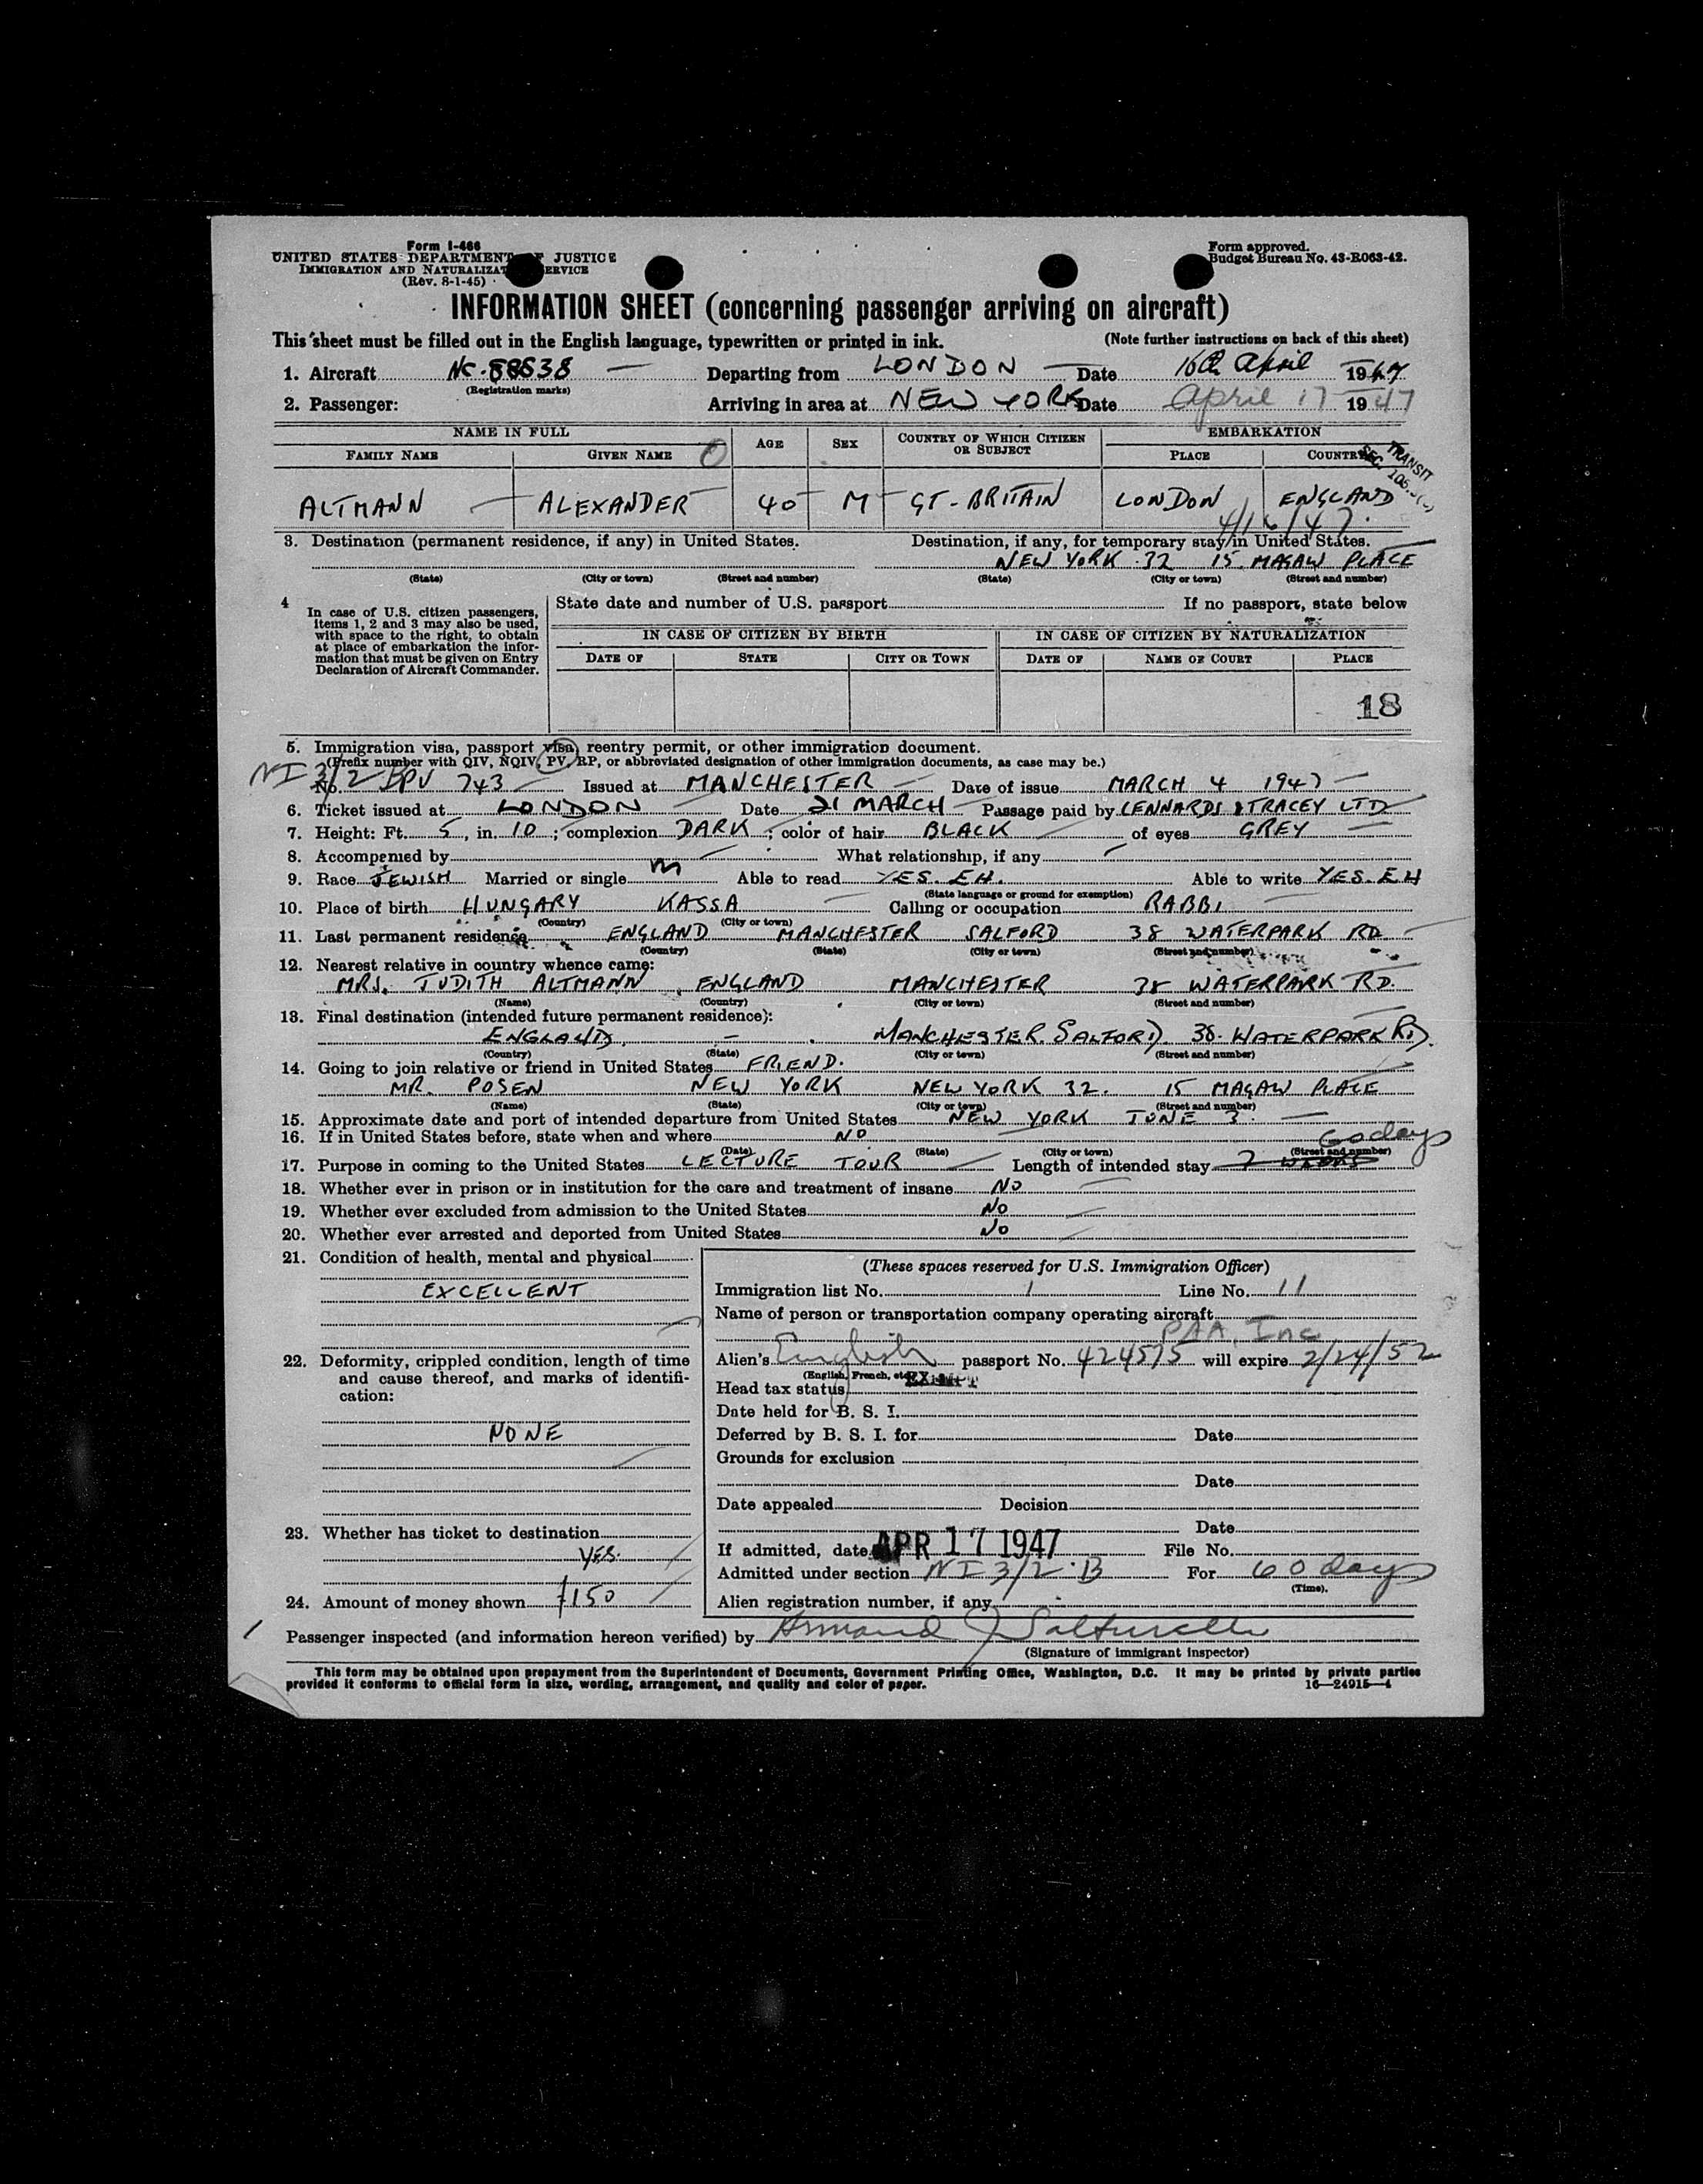 Form I-466
UNITED STATES DEPARTMENT OF JUSTICE
IMMIGRATION AND NATURALIZATION SERVICE
(Rev. 8-1-45)
Form approved.
Budget Bureau No. 43-R063-42.
INFORMATION SHEET (concerning passenger arriving on aircraft)
This sheet must be filled out in the English language, typewritten or printed in ink. (Note further instructions on back of this sheet)
1. Aircraft NC-88838 Departing from LONDON Date 16th April 1947
(Registration marks)
2. Passenger: Arriving in area at NEW YORK Date April 17 1947
NAME IN FULL AGE SEX COUNTRY OF WHICH CITIZEN OR SUBJECT EMBARKATION
FAMILY NAME GIVEN NAME PLACE COUNTRY
TRANSIT
SEC. 106.
ALTMANN ALEXANDER 40 M GT-BRITAIN LONDON ENGLAND
4/16/47.
3. Destination (permanent residence, if any) in United States. Destination, if any, for temporary stay in United States.
NEW YORK 32 15. MAGAW PLACE
(State) (City or town) (Street and number) (State) (City or town) (Street and number)
4 In case of U.S. citizen passengers, items 1, 2 and 3 may also be used, with space to the right, to obtain at place of embarkation the information that must be given on Entry Declaration of Aircraft Commander.
State date and number of U.S. passport If no passport, state below
IN CASE OF CITIZEN BY BIRTH IN CASE OF CITIZEN BY NATURALIZATION
DATE OF STATE CITY OR TOWN DATE OF NAME OF COURT PLACE
18
5. Immigration visa, passport visa, reentry permit, or other immigration document.
(Prefix number with QIV, NQIV, PV, RP, or abbreviated designation of other immigration documents, as case may be.)
NI 3/2 B
No. PV 743 Issued at MANCHESTER Date of issue MARCH 4 1947
6. Ticket issued at LONDON Date 21 MARCH Passage paid by LENNARDS & TRACEY LTD
7. Height: Ft. 5, in. 10; complexion DARK; color of hair BLACK of eyes GREY
8. Accompanied by What relationship, if any
9. Race JEWISH Married or single M Able to read YES. EH. Able to write YES. EH
(State language or ground for exemption)
10. Place of birth HUNGARY KASSA Calling or occupation RABBI
(Country) (City or town)
11. Last permanent residence ENGLAND MANCHESTER SALFORD 38 WATERPARK RD
(Country) (State) (City or town) (Street and number)
12. Nearest relative in country whence came:
MRS. JUDITH ALTMANN, ENGLAND MANCHESTER 38 WATERPARK RD.
(Name) (Country) (City or town) (Street and number)
13. Final destination (intended future permanent residence):
ENGLAND, MANCHESTER. SALFORD. 38. WATERPARK RD.
(Country) (State) (City or town) (Street and number)
14. Going to join relative or friend in United States FRIEND.
MR. POSEN NEW YORK NEW YORK 32. 15 MAGAW PLACE
(Name) (State) (City or town) (Street and number)
15. Approximate date and port of intended departure from United States NEW YORK JUNE 3.
16. If in United States before, state when and where NO
(Date) (State) (City or town) (Street and number)
60 days
17. Purpose in coming to the United States LECTURE TOUR Length of intended stay 7 WEEKS
18. Whether ever in prison or in institution for the care and treatment of insane NO
19. Whether ever excluded from admission to the United States NO
20. Whether ever arrested and deported from United States NO
21. Condition of health, mental and physical
EXCELLENT
22. Deformity, crippled condition, length of time and cause thereof, and marks of identification:
NONE
23. Whether has ticket to destination
YES.
24. Amount of money shown 150
(These spaces reserved for U.S. Immigration Officer)
Immigration list No. 1 Line No. 11
Name of person or transportation company operating aircraft
PAA, Inc
Alien's English passport No. 424575 will expire 2/24/52
(English, French, etc.)
Head tax status EXEMPT
Date held for B. S. I.
Deferred by B. S. I. for Date
Grounds for exclusion
Date
Date appealed Decision
Date
If admitted, date APR 17 1947 File No.
Admitted under section NI 3/2·B For 60 days
(Time).
Alien registration number, if any
Passenger inspected (and information hereon verified) by Armand J
(Signature of immigrant inspector)
This form may be obtained upon prepayment from the Superintendent of Documents, Government Printing Office, Washington, D.C. It may be printed by private parties
provided it conforms to official form in size, wording, arrangement, and quality and color of paper. 16—24915-4